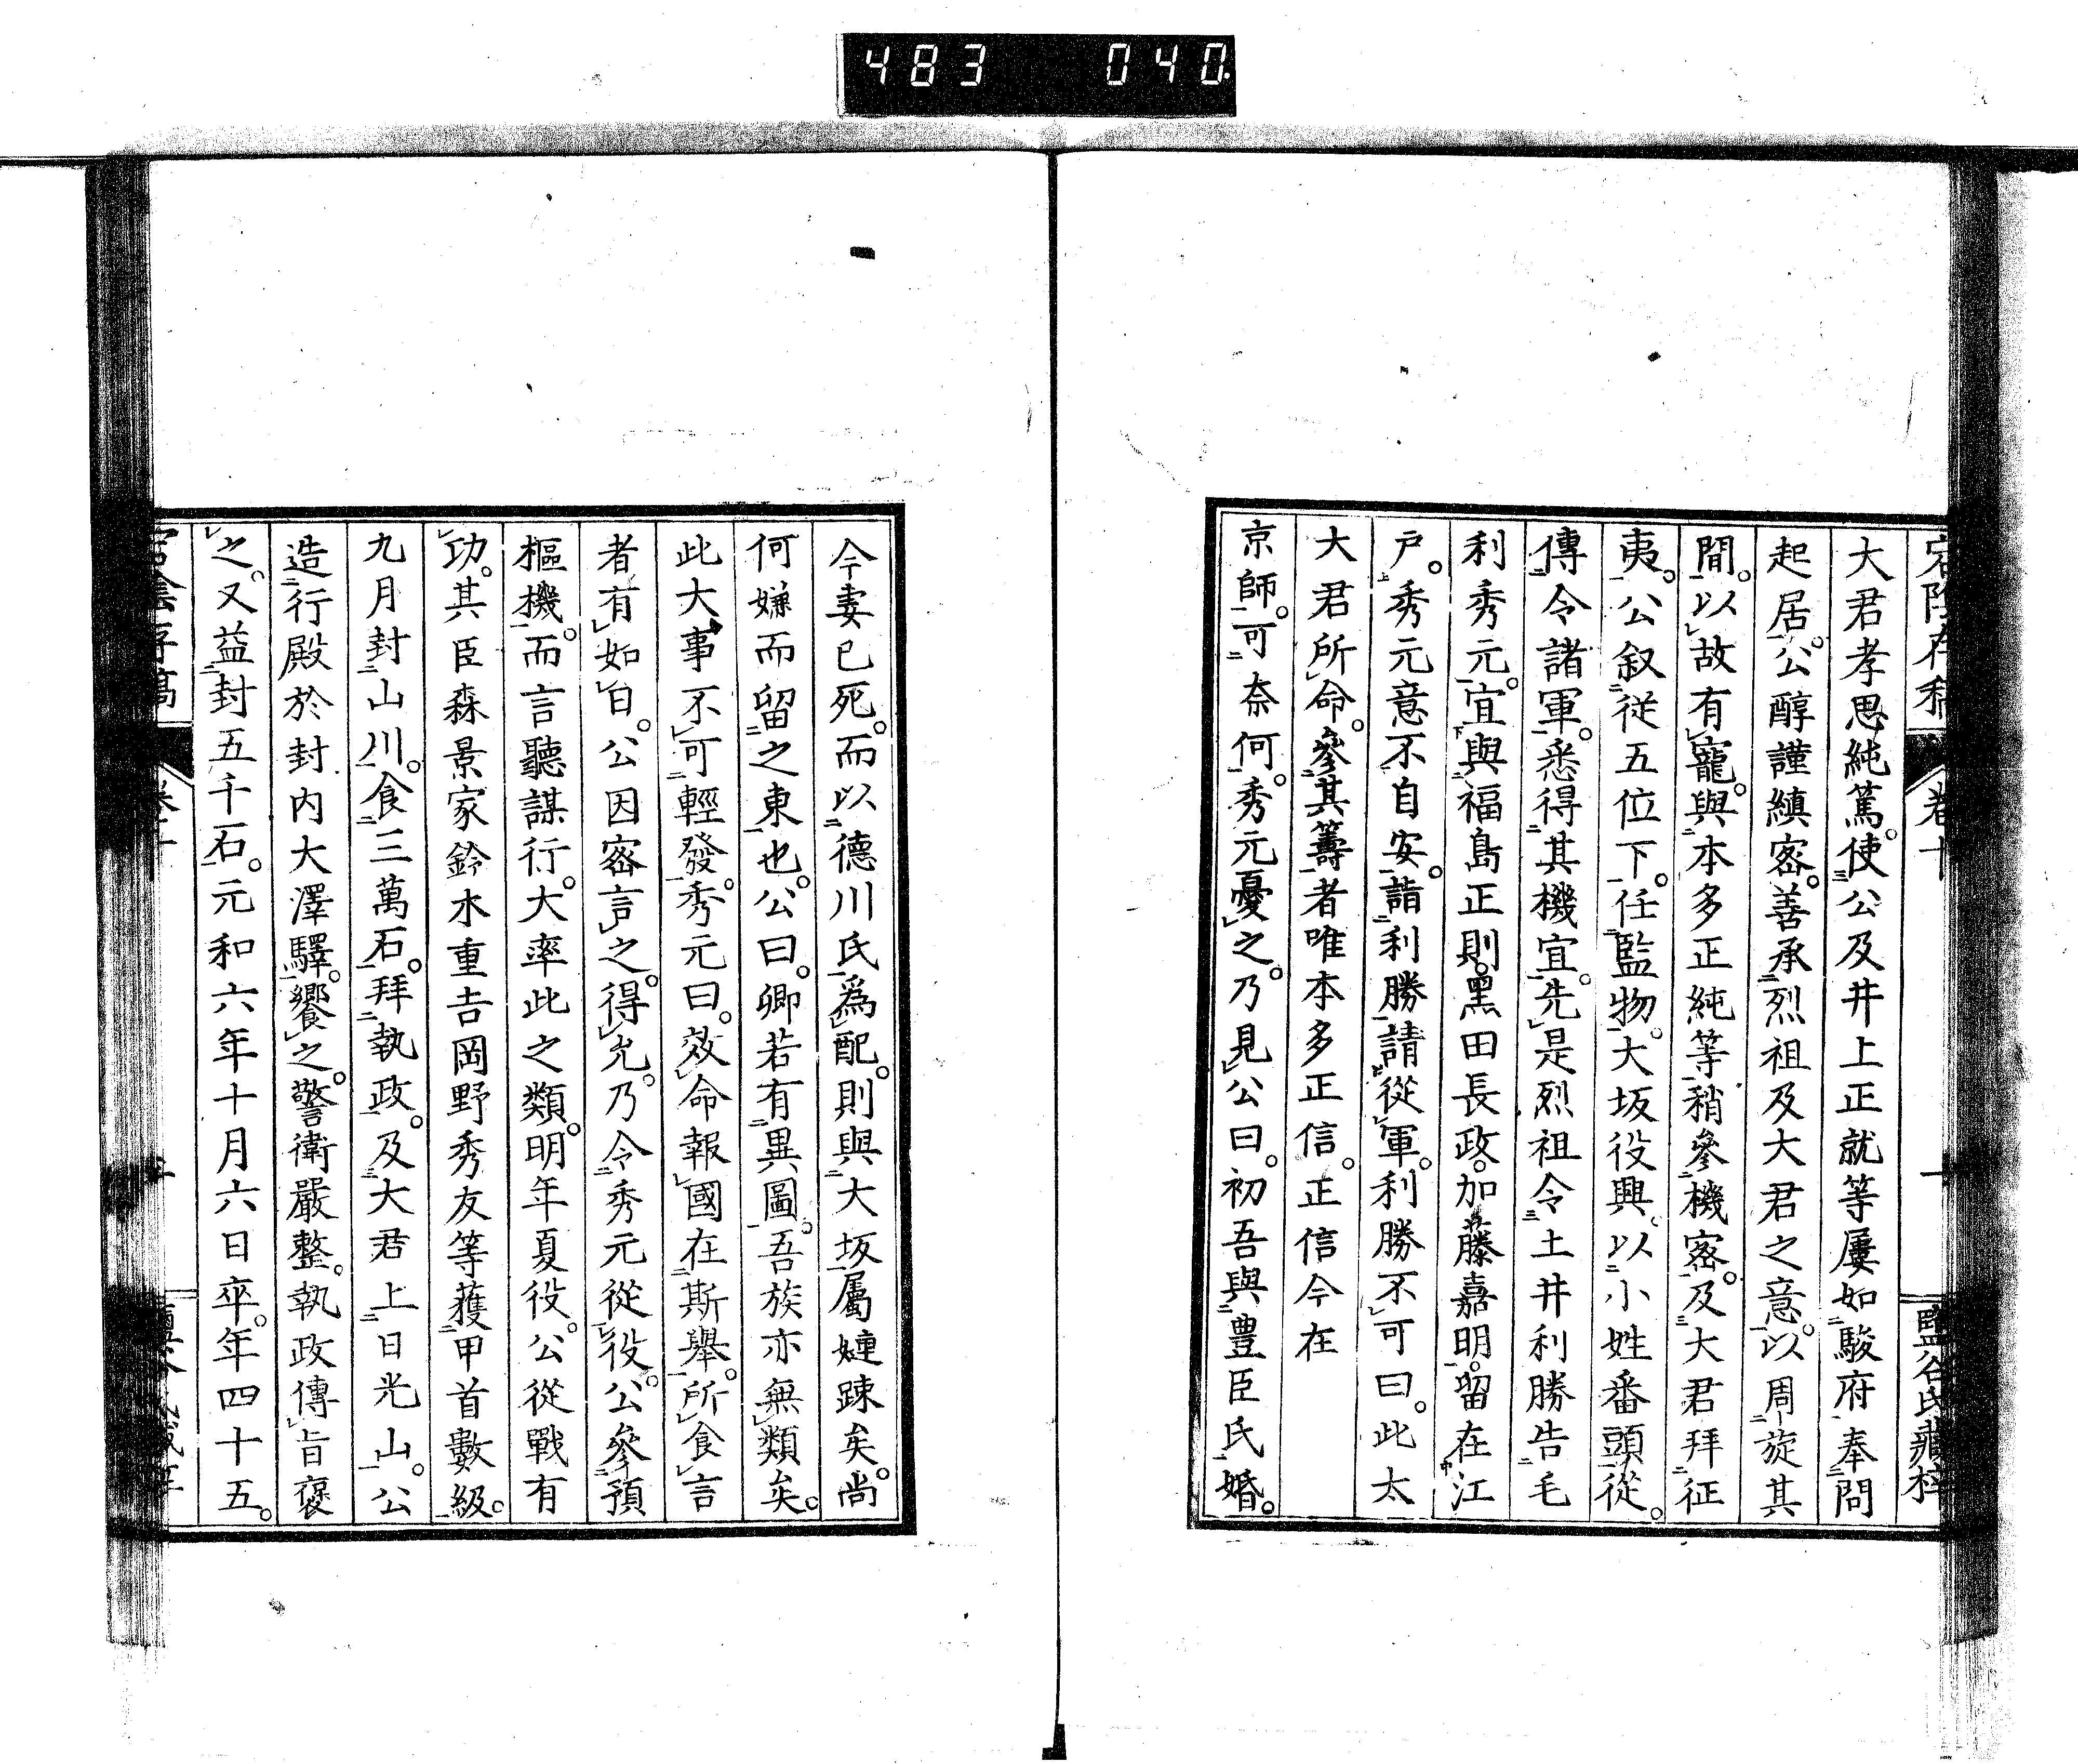 483 040
宕陰存稿 卷十 十 鹽谷氏藏梓
大君孝思純篤。使公及井上正就等屢如駿府奉問
起居。公醇謹縝密。善承烈祖及大君之意。以周旋其
間。以故有寵。與本多正純等稍參機密。及大君拜征
夷。公叙從五位下。任監物。大坂役興。以小姓番頭從。
傳令諸軍。悉得其機宜。先是烈祖令土井利勝告毛
利秀元。宜與福島正則。黑田長政。加藤嘉明。留在江
戶。秀元意不自安。詣利勝請從軍。利勝不可曰。此太
大君所命。參其籌者唯本多正信。正信今在
京師。可奈何。秀元憂之。乃見公曰。初吾與豊臣氏婚。
今妻已死。而以德川氏為配。則與大坂屬婕踈矣。尚
何嫌而留之東也。公曰。卿若有異圖。吾族亦無類矣。
此大事不可輕發。秀元曰。效命報國在斯舉。所食言
者有如白。公因密言之。得允。乃令秀元從役。公參預
樞機。而言聽謀行。大率此之類。明年夏役。公從戰有
功。其臣森景家鈴木重吉岡野秀友等獲甲首數級。
九月封山川。食三萬石。拜執政。及大君上日光山。公
造行殿於封內大澤驛。饗之。警衛嚴整。執政傳旨褒
之。又益封五千石。元和六年十月六日卒。年四十五。